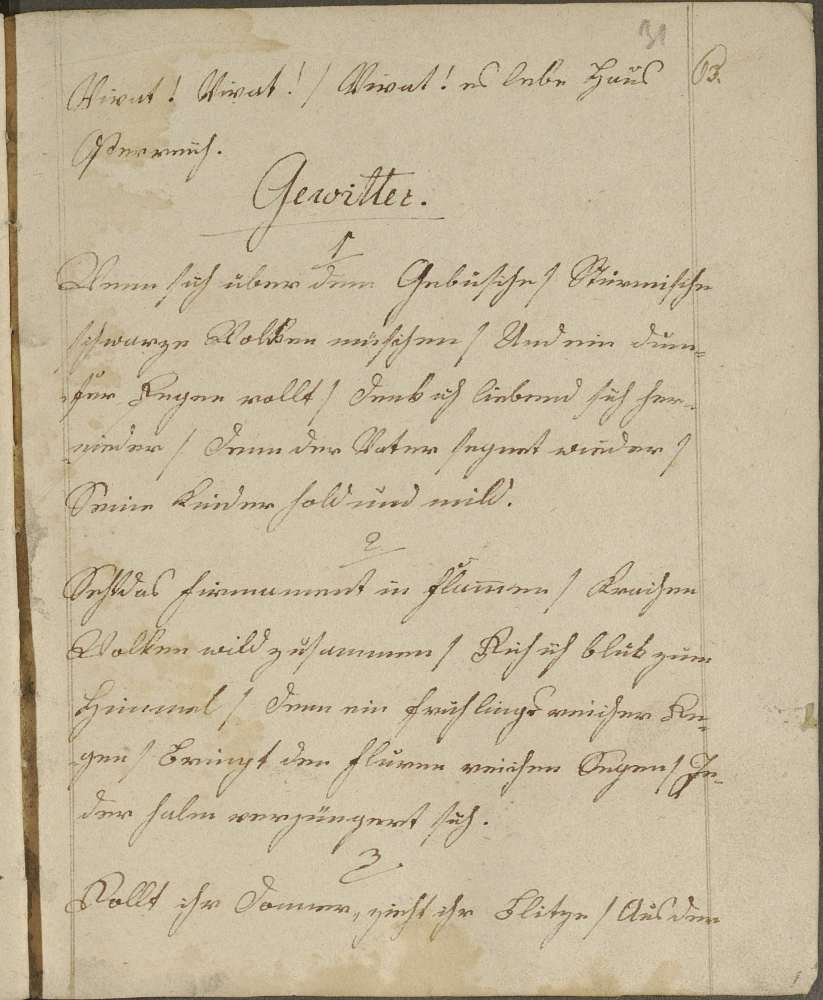 31
Vivat! Vivat! / Vivat! es lebe Haus 63.
Österreich.
Gewitter.
1
Wenn sich über dem Gebüsche / Stürmische
schwarze Wolken mischen / Und ein dum-
Regen rollt / Denk ich liebend sich her-
nieder / Denn der Vater segnet wieder /
Seine Kinder hold und mild.
2
Seht das Firmament in Flammen / Krachen
Wolken wild zusammen / Ruh ich blick zum
Himmel / Denn ein frühlingsreicher Re-
gen / Bringt den Fluren reichen Segen / Je-
der Halm verjüngert sich.
3
Rollt ihr Donner, zieht ihr Blitze / Aus den